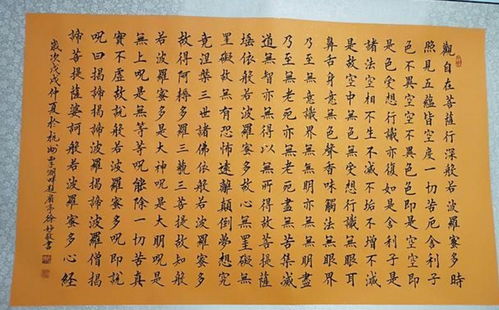 觀自在菩薩行深般若波羅蜜多時
照見五蘊皆空度一切苦厄舍利子
色不異空空不異色色即是空空即
是色受想行識亦復如是舍利子是
諸法空相不生不滅不垢不增不減
是故空中無色無受想行識無眼耳
鼻舌身意無色聲香味觸法無眼界
乃至無意識界無無明亦無無明盡
乃至無老死亦無老死盡無苦集滅
道無智亦無得以無所得故菩提薩
埵依般若波羅蜜多故心無罣礙無
罣礙故無有恐怖遠離顛倒夢想究
竟涅槃三世諸佛依般若波羅蜜多
故得阿耨多羅三藐三菩提故知般
若波羅蜜多是大神呪是大明呪是
無上呪是無等等呪能除一切苦真
實不虛故說般若波羅蜜多呪即說
呪曰揭諦揭諦波羅揭諦波羅僧揭
諦菩提薩婆訶般若波羅蜜多心經
歲次戊戌仲夏於杭州